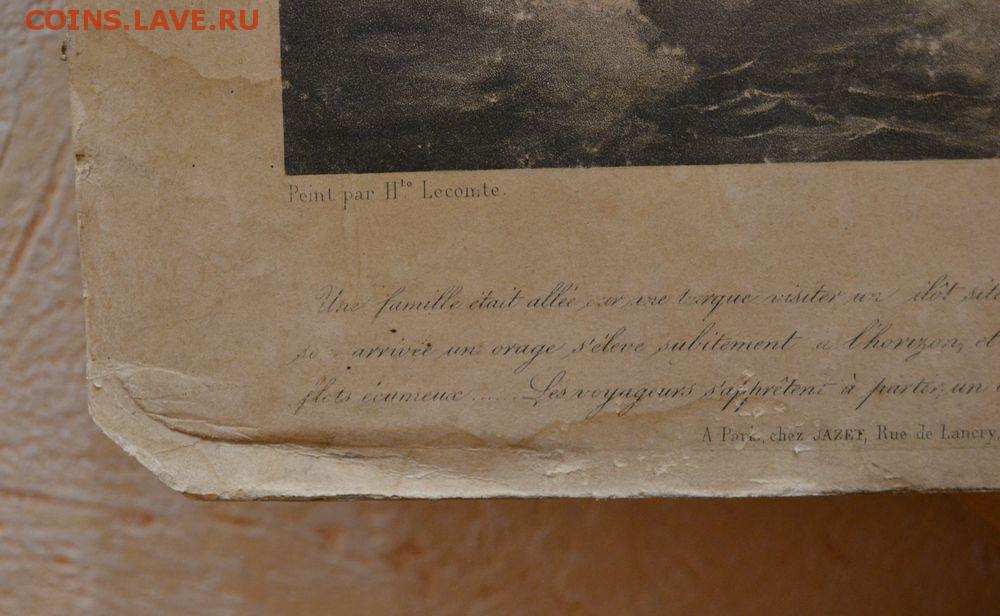 COINS.LAVE.RU
Peint par Hte Lecomte.
Une famille était allée sur une barque visiter un îlôt
arrivée un orage s'éleve subitement à l'horizon, et
flots écumeux...... Les voyageurs s'apprêtent à partir, un
A Paris, chez JAZET, Rue de Lancry,